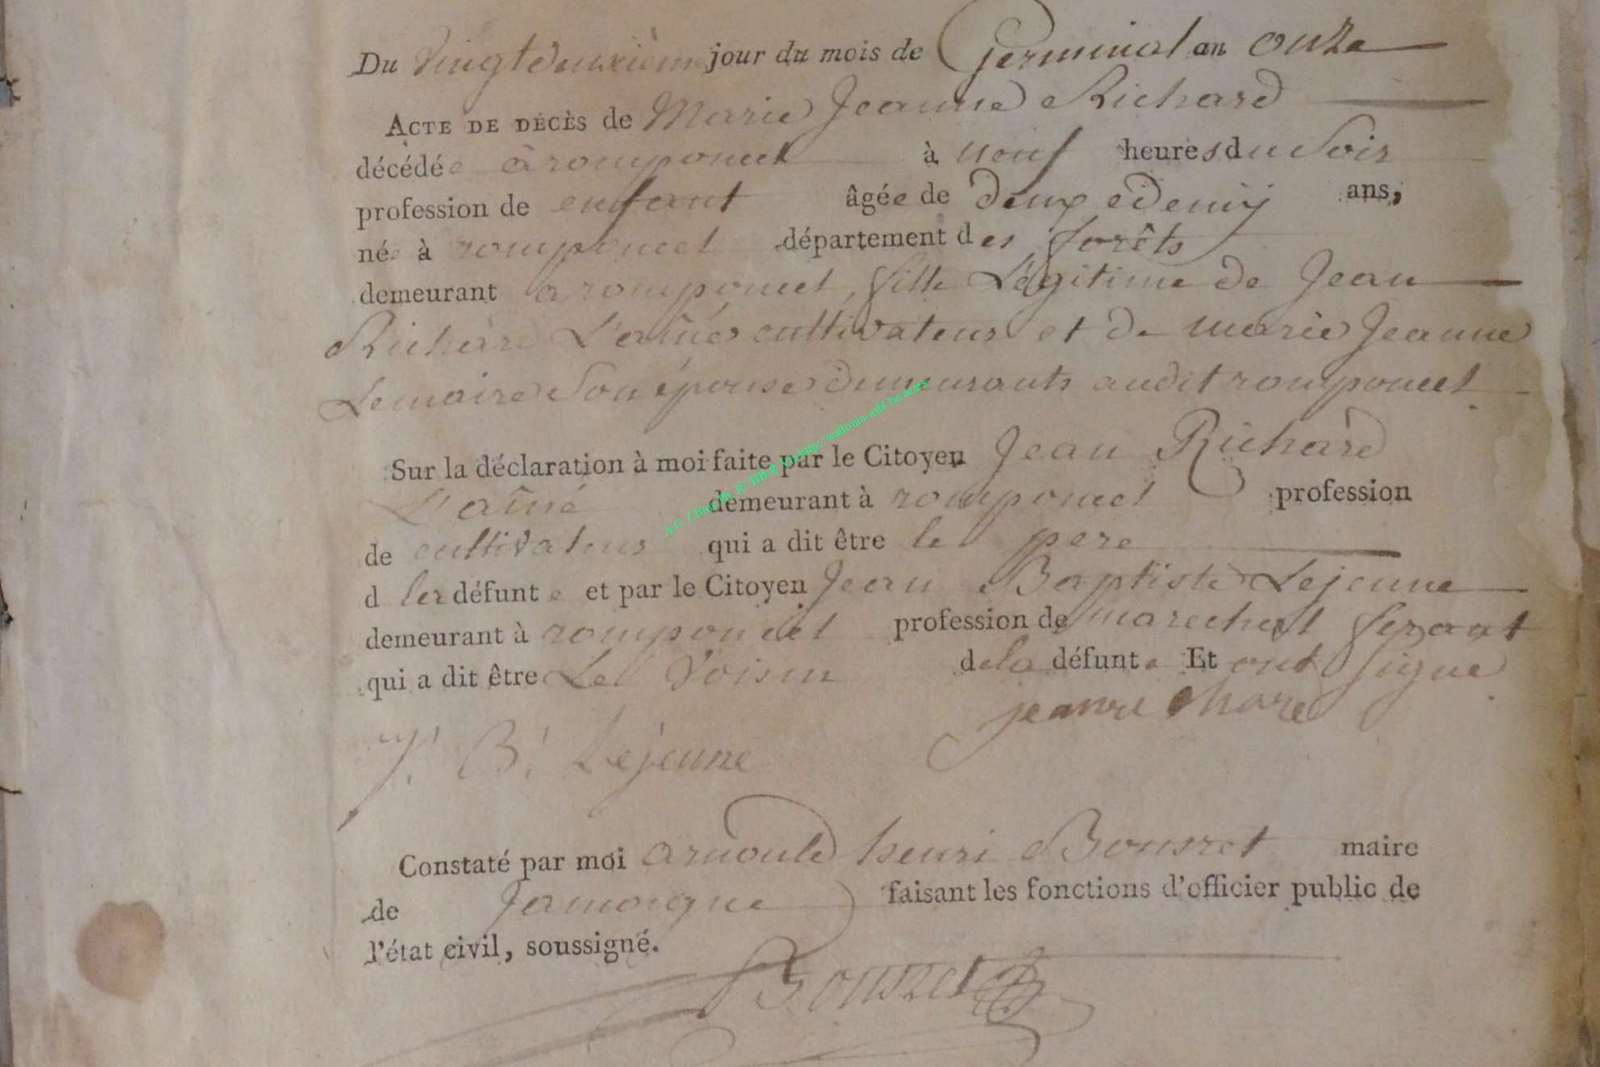 Du Vingtdeuxième jour du mois de Germinal an onze
ACTE DE DÉCÈS de Marie Jeanne Richard
décédée à romponcel à neuf heures du Soir
profession de enfant âgée de deux edemij ans,
née à romponcel département des forêts
demeurant a romponcel, fille Légitime de Jean
Richard L'aîné cultivateur et de marie Jeanne
Lemaire Son épouse demeurants audit romponcel
Sur la déclaration à moi faite par le Citoyen Jean Richard
L'aîné demeurant à romponcel profession
de cultivateur qui a dit être le pere
d ler défunte et par le Citoyen Jean Baptiste Lejeune
demeurant à romponcel profession de marechal ferant
qui a dit être Le Voisin dela défunte Et ont signé
jean richard
J. B. Lejeune
Constaté par moi arnould henri Bousret maire
de Jamoigne faisant les fonctions d'officier public de
l'état civil, soussigné.
Bousret